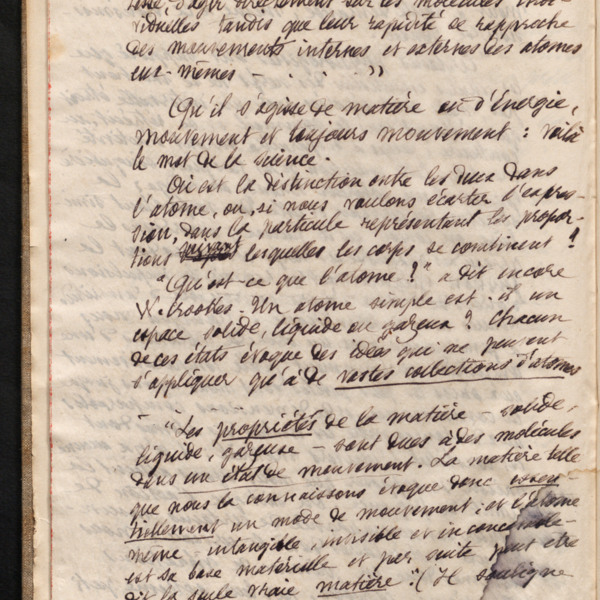 s'agir directement sur les molécules indi-
viduelles tandis que leur rapidité se rapproche
des mouvements internes et externes des atomes
eux-mêmes - . . . »
(Qu'il s'agisse de matière ou d'Energie,
mouvement et toujours mouvement : voilà
le mot de la science.
Où est la distinction entre les deux dans
l'atome, ou, si nous voulons écarter l'expres-
sion, dans la particule représentant les propor-
tions suivant lesquelles les corps se combinent ?
"Qu'est-ce que l'atome ?" a dit encore
W. Crookes. Un atome simple est-il un
espace solide, liquide ou gazeux ? Chacun
de ces états évoque des idées qui ne peuvent
s'appliquer qu'à de vastes collections d'atomes
- "Les propriétés de la matière - solide,
liquide, gazeuse - sont dues à des molécules
dans un état de mouvement. La matière telle
que nous la connaissons évoque donc essen-
tiellement un mode de mouvement ; et l'atome
même intangible, invisible et inconcevable -
est sa base matérielle et par suite peut être
dit la seule vraie matière". (Il souligne